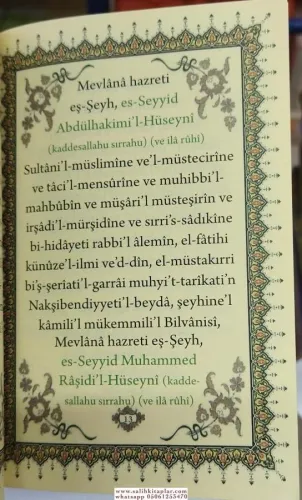 Mevlânâ hazreti
eş-Şeyh, es-Seyyid
Abdülhakîmi'l-Hüseynî
(kaddesallahu sırrahu) (ve ilâ rûhi)
Sultâni'l-müslimîne ve'l-müstecirîne
ve tâci'l-mensûrîne ve muhibbi'l-
mahbûbîn ve müşâri'l müsteşirîn ve
irşâdi'l-mürşidîne ve sırri's-sâdıkîne
bi-hidâyeti rabbi'l âlemîn, el-fâtihi
künûze'l-ilmi ve'd-dîn, el-müstakırri
bi'ş-şeriati'l-garrâi muhyi't-tarîkati'n
Nakşibendiyyeti'l-beydâ, şeyhine'l
kâmili'l mükemmili'l Bilvânisî,
Mevlânâ hazreti eş-Şeyh,
es-Seyyid Muhammed
Râşidi'l-Hüseynî (kadde-
sallahu sırrahu) (ve ilâ rûhi)
13
www.salihkitaplar.com
whatsapp 05061255470